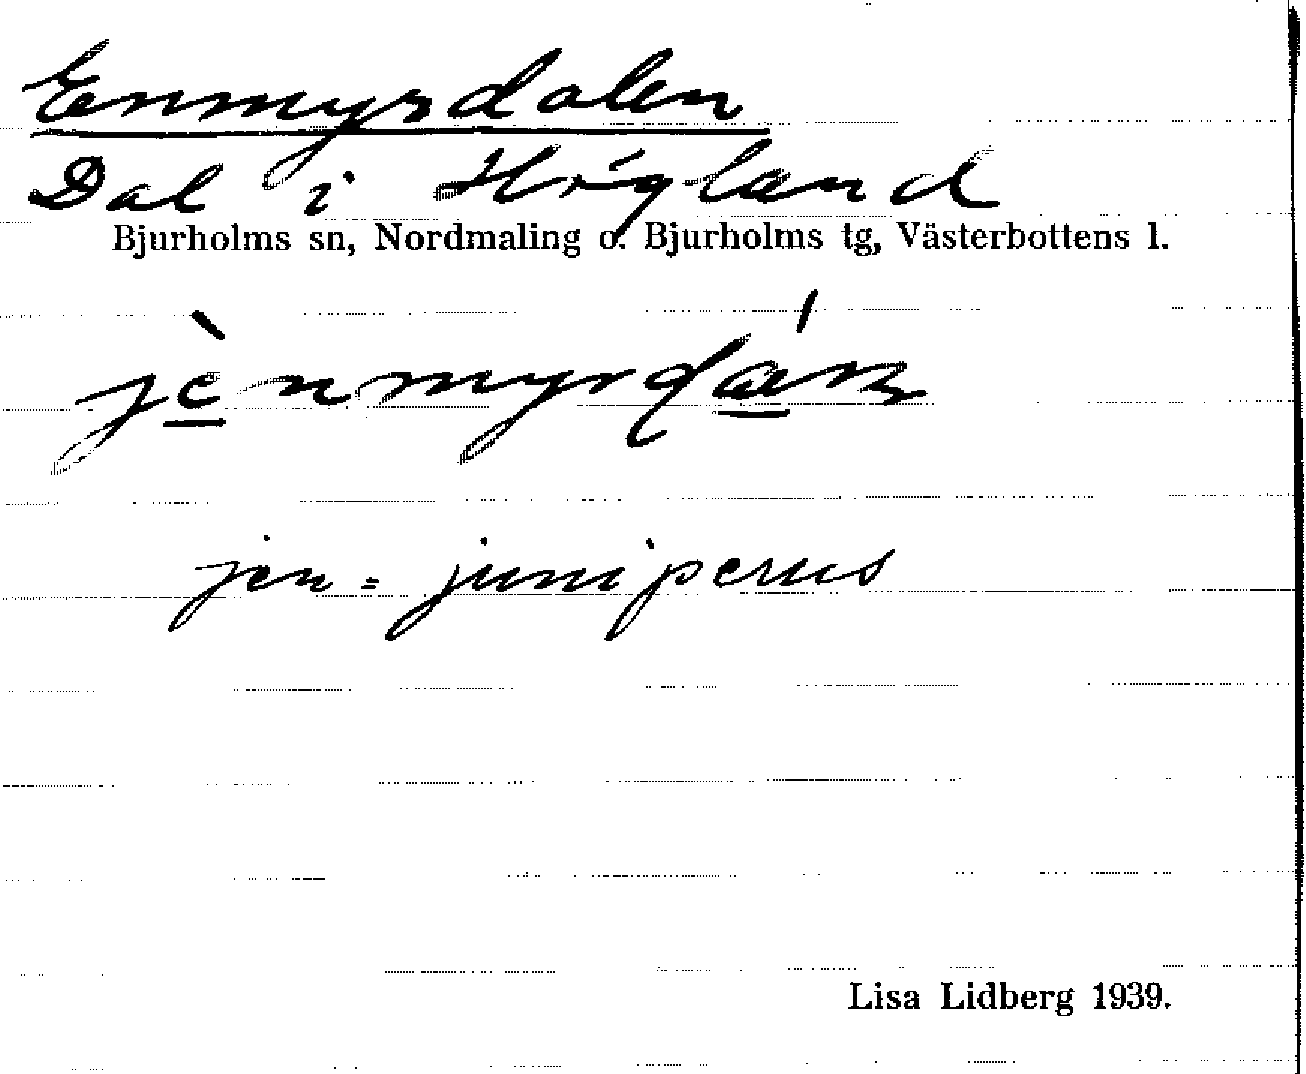 Enmyrdalen
Dal i Högland
Bjurholms sn, Nordmaling o. Bjurholms tg, Västerbottens l.
jen = juniperus
Lisa Lidberg 1939.